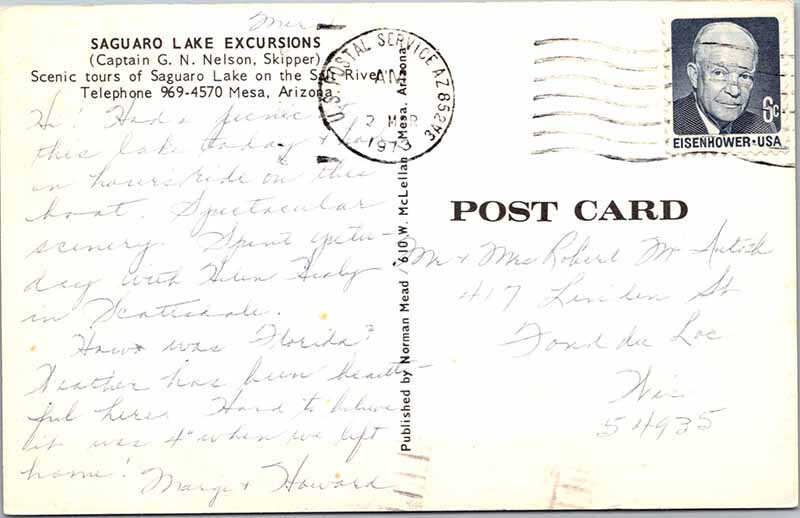 SAGUARO LAKE EXCURSIONS
(Captain G. N. Nelson, Skipper)
Scenic tours of Saguaro Lake on the Salt River
Telephone 969-4570 Mesa, Arizona
Hi! Had a picnic at
this lake today & had
an hour's ride on this
boat. Spectacular
scenery. Spent yester-
day with Helen Healy
in Scottsdale.
How was Florida?
Weather has been beauti-
ful here. Hard to believe
it was 4° when we left
home!
Marge & Howard
Published by Norman Mead / 610 W. McLellan / Mesa, Arizona
U.S. POSTAL SERVICE AZ 852
AM
2 MAR
1973
6c
EISENHOWER·USA
POST CARD
Mr & Mrs Robert
417 Linden St
Fond du Loc
Wis
54935